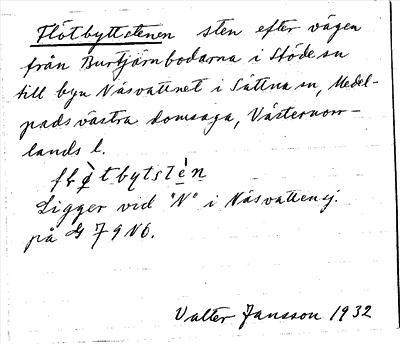 Flötbyttstenen sten efter vägen
från Burtjärnbodarna i Stöde sn
till byn Näsvattnet i Sättna sn, Medel-
pads västra domsaga, Västernorr-
lands l.
Ligger vid "N" i Näsvattensj.
på G 79 NO.
Valter Jansson 1932